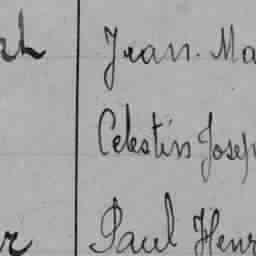 Jean-Ma
Celestin Josep
Paul Henr